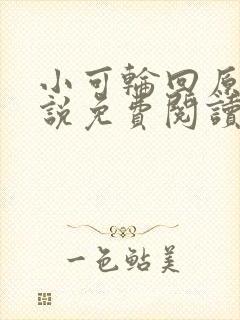 小可輪回原
說免費閱讀
一色鮎美